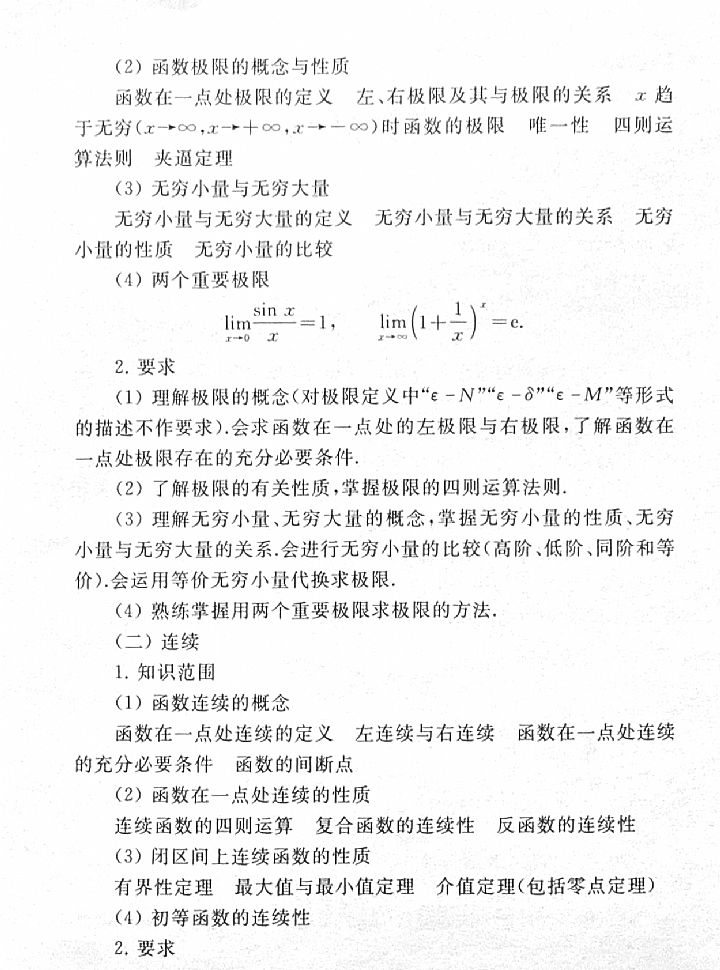 (2) 函数极限的概念与性质
函数在一点处极限的定义　左、右极限及其与极限的关系　x 趋
于无穷(x→∞,x→+∞,x→-∞)时函数的极限　唯一性　四则运
算法则　夹逼定理
(3) 无穷小量与无穷大量
无穷小量与无穷大量的定义　无穷小量与无穷大量的关系　无穷
小量的性质　无穷小量的比较
(4) 两个重要极限
lim_{x→0} sin x / x = 1,　lim_{x→∞} (1 + 1/x)^x = e.
2. 要求
(1) 理解极限的概念(对极限定义中“ε－N”“ε－δ”“ε－M”等形式
的描述不作要求).会求函数在一点处的左极限与右极限,了解函数在
一点处极限存在的充分必要条件.
(2) 了解极限的有关性质,掌握极限的四则运算法则.
(3) 理解无穷小量、无穷大量的概念,掌握无穷小量的性质、无穷
小量与无穷大量的关系.会进行无穷小量的比较(高阶、低阶、同阶和等
价).会运用等价无穷小量代换求极限.
(4) 熟练掌握用两个重要极限求极限的方法.
(二) 连续
1. 知识范围
(1) 函数连续的概念
函数在一点处连续的定义　左连续与右连续　函数在一点处连续
的充分必要条件　函数的间断点
(2) 函数在一点处连续的性质
连续函数的四则运算　复合函数的连续性　反函数的连续性
(3) 闭区间上连续函数的性质
有界性定理　最大值与最小值定理　介值定理(包括零点定理)
(4) 初等函数的连续性
2. 要求